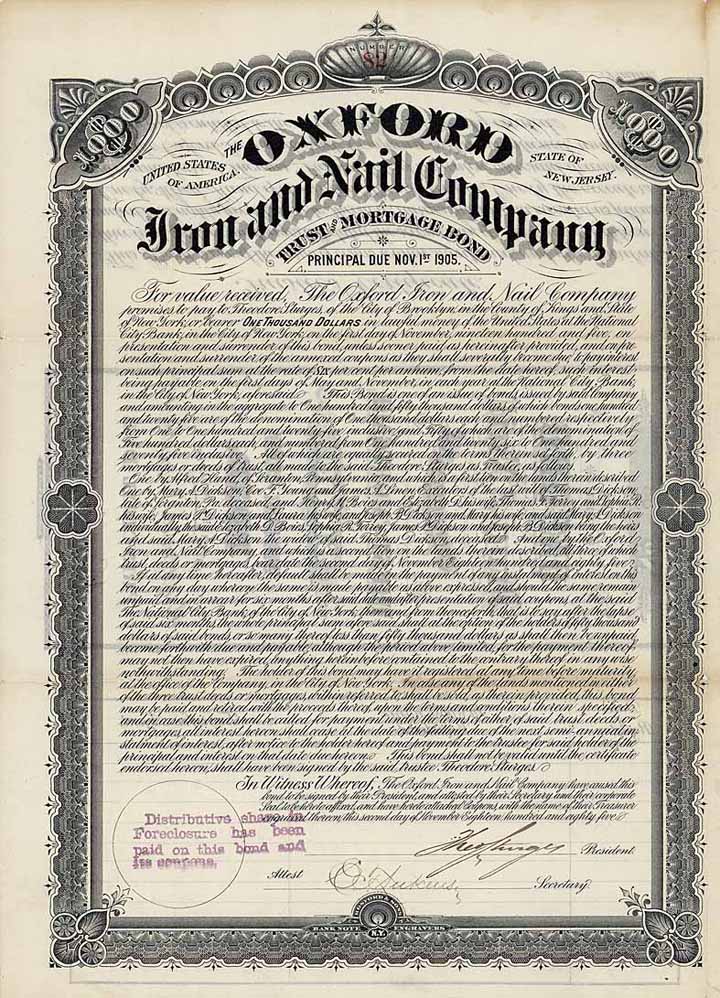 NUMBER
82
$1000
$1000
THE OXFORD
UNITED STATES OF AMERICA.
STATE OF NEW JERSEY.
Iron and Nail Company
TRUST AND MORTGAGE BOND
PRINCIPAL DUE NOV. 1ST 1905.
For value received, The Oxford Iron and Nail Company
promises to pay to Theodore Sturges, of the City of Brooklyn, in the County of Kings and State
of New York, or bearer ONE THOUSAND DOLLARS in lawful money of the United States at the National
City Bank, in the City of New York, on the first day of November, nineteen hundred and five, on
presentation and surrender of this bond, unless sooner paid as hereinafter provided, and on pre-
sentation and surrender of the annexed coupons as they shall severally become due, to pay interest
on such principal sum at the rate of six per cent per annum, from the date hereof such interest
being payable on the first days of May and November, in each year at the National City Bank,
in the City of New York, aforesaid. This Bond is one of an issue of bonds, issued by said Company
and amounting in the aggregate to One hundred and fifty thousand dollars, of which bonds one hundred
and twenty five are of the denomination of One thousand dollars each and numbered respectively
from One to One hundred and twenty five inclusive, and Fifty of which are of the denomination of
Five hundred dollars each, and numbered from One hundred and twenty six to One hundred and
seventy five inclusive. All of which are equally secured on the terms therein set forth, by three
mortgages or deeds of trust, all made to the said Theodore Sturges as Trustee, as follows:
One by Alfred Hand, of Scranton, Pennsylvania, and which is a first lien on the lands therein described
One by Mary A. Dickson, Geo. F. Young and James A. Linen, Executors of the last will of Thomas Dickson,
late of Scranton, Pa. deceased, and Henry M. Boies and Elizabeth D. his wife, Thomas F. Torrey and Sophia R.
his wife, James P. Dickson and his wife, Joseph B. Dickson and Mary his wife, and said Mary A. Dickson
individually, the said Elizabeth D. Boies, Sophia R. Torrey, James P. Dickson and Joseph B. Dickson being the heirs
and said Mary A. Dickson the widow of said Thomas Dickson, deceased. And one by the Oxford
Iron and Nail Company, and which is a second lien on the lands therein described, all three of which
trust deeds or mortgages bear date the second day of November Eighteen hundred and eighty five.
If at any time hereafter, default shall be made in the payment of any instalment of interest on this
bond, on any day whereon the same is made payable as above expressed, and should the same remain
unpaid, and in arrear for six months after said due date after presentation of said coupons, at the said
The National City Bank of the City of New York, then and from thenceforth, that is to say after the lapse
of said six months, the whole principal sum aforesaid shall at the option of the holders of fifty thousand
dollars of said bonds, or so many thereof less than fifty thousand dollars as shall then be unpaid,
become forthwith due and payable although the period above limited for the payment thereof
may not then have expired, anything hereinbefore contained to the contrary thereof in any wise
notwithstanding. The holder of this bond may have it registered at any time before maturity
at the office of the Company, in the City of New York. In case any of the lands mentioned in either
of the three trust deeds or mortgages, within referred to, shall be sold, as therein provided, this bond
may be paid and retired with the proceeds thereof upon the terms and conditions therein specified;
and in case this bond shall be called for payment under the terms of either of said trust deeds or
mortgages, all interest hereon shall cease at the date of the falling due of the next semi-annual in-
stalment of interest, after notice to the holder hereof and payment to the trustee for said holder of the
principal and interest on that date due hereon. This bond shall not be valid until the certificate
endorsed hereon, shall have been signed by the said trustee Theodore Sturges.
In Witness Whereof, The Oxford Iron and Nail Company have caused this
bond to be signed by their President, and attested by their Secretary, and their corporate
Seal to be hereto affixed, and have hereto attached Coupons, with the name of their Treasurer
engraved thereon, this second day of November Eighteen hundred and eighty five.
Distributive share on
Foreclosure has been
paid on this bond and
its coupons.
President.
Attest
Secretary.
BANK NOTE ENGRAVERS
N.Y.